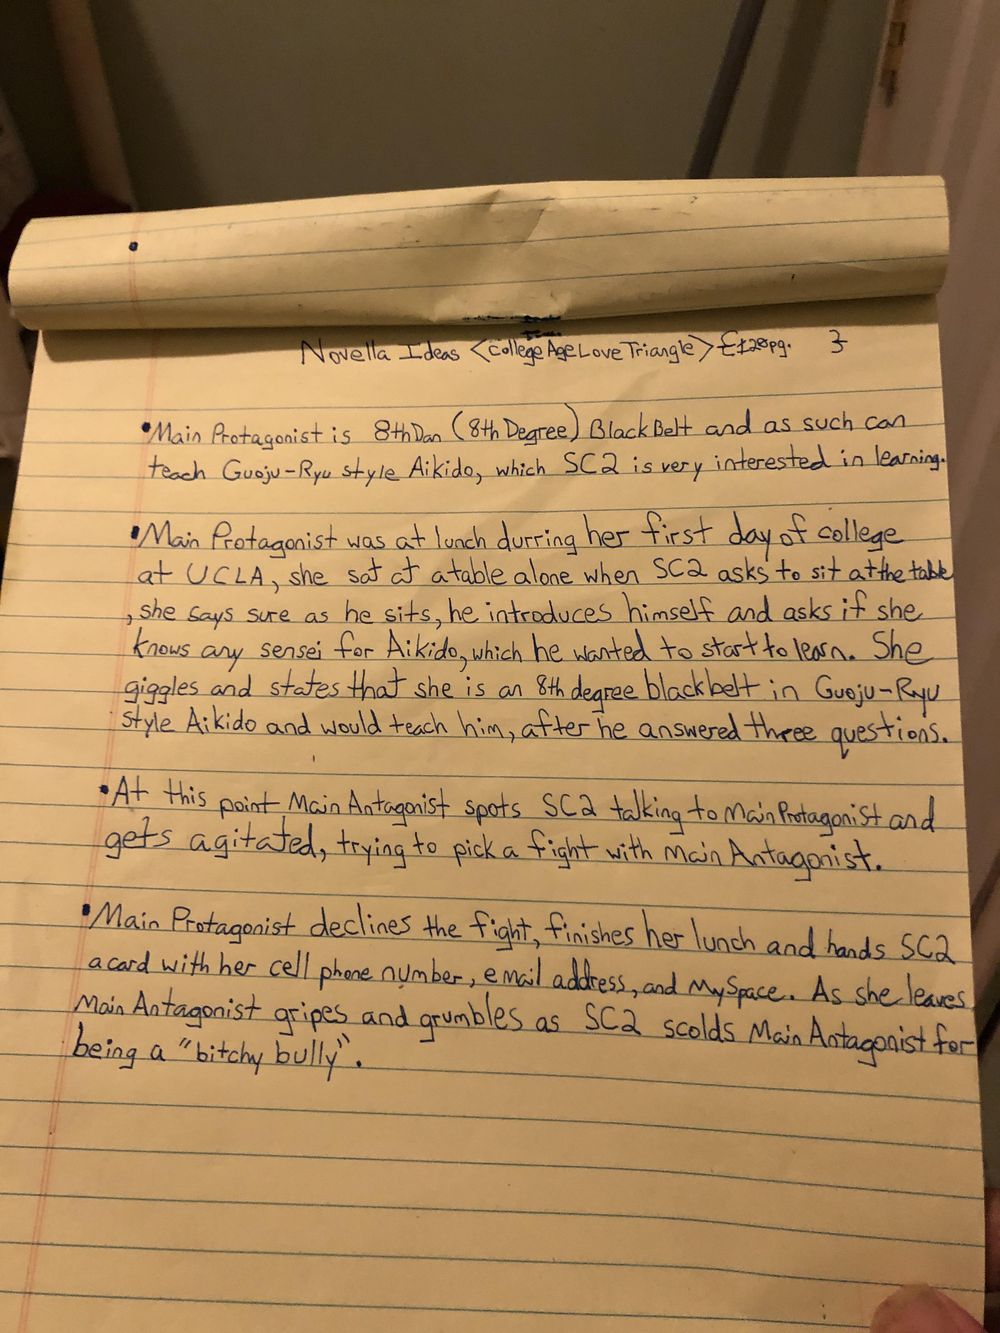 Novella Ideas <College Age Love Triangle> 3
•Main Protagonist is 8th Dan (8th Degree) Black Belt and as such can
teach Guoju-Ryu style Aikido, which SC2 is very interested in learning.
•Main Protagonist was at lunch durring her first day of college
at UCLA, she sat at a table alone when SC2 asks to sit at the table
, she says sure as he sits, he introduces himself and asks if she
knows any sensei for Aikido, which he wanted to start to learn. She
giggles and states that she is an 8th degree blackbelt in Guoju-Ryu
style Aikido and would teach him, after he answered three questions.
•At this point Main Antagonist spots SC2 talking to Main Protagonist and
gets agitated, trying to pick a fight with Main Antagonist.
•Main Protagonist declines the fight, finishes her lunch and hands SC2
a card with her cell phone number, email address, and MySpace. As she leaves
Main Antagonist gripes and grumbles as SC2 scolds Main Antagonist for
being a "bitchy bully".